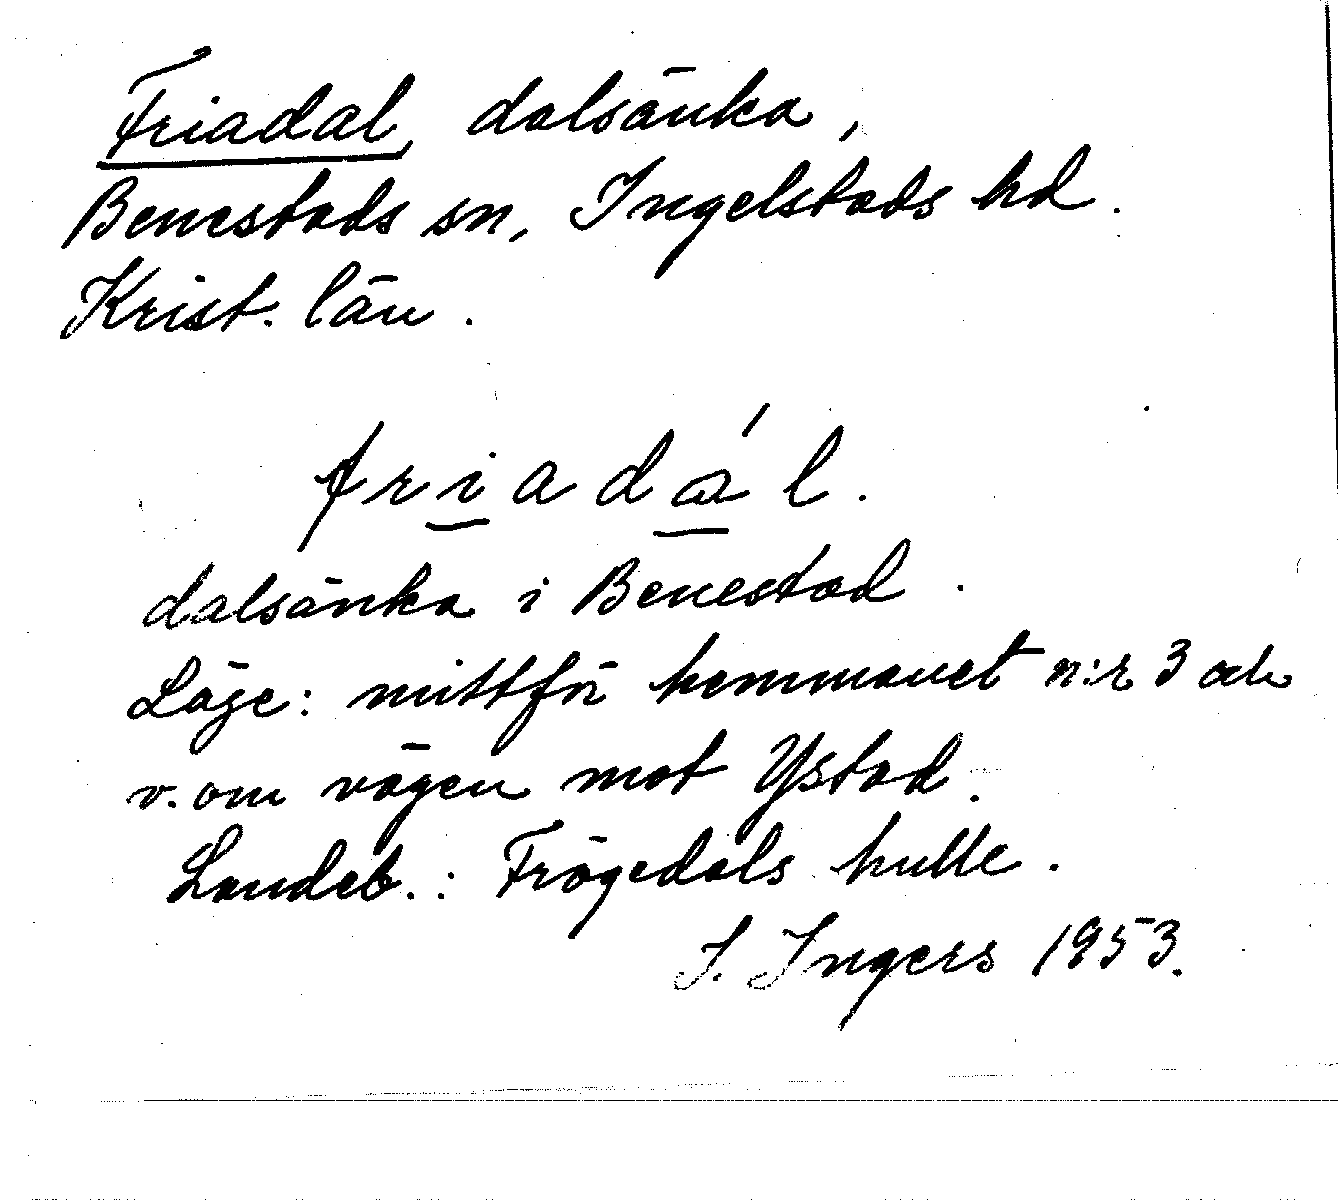 Friadal, dalsänka,
Benestads sn, Ingelstads hd.
Krist. län.
friadál.
dalsänka i Benestad.
Läge: mittför hemmanet n:r 3 och
v. om vägen mot Ystad.
Landeb.: Frögedals hulle.
I. Ingers 1953.